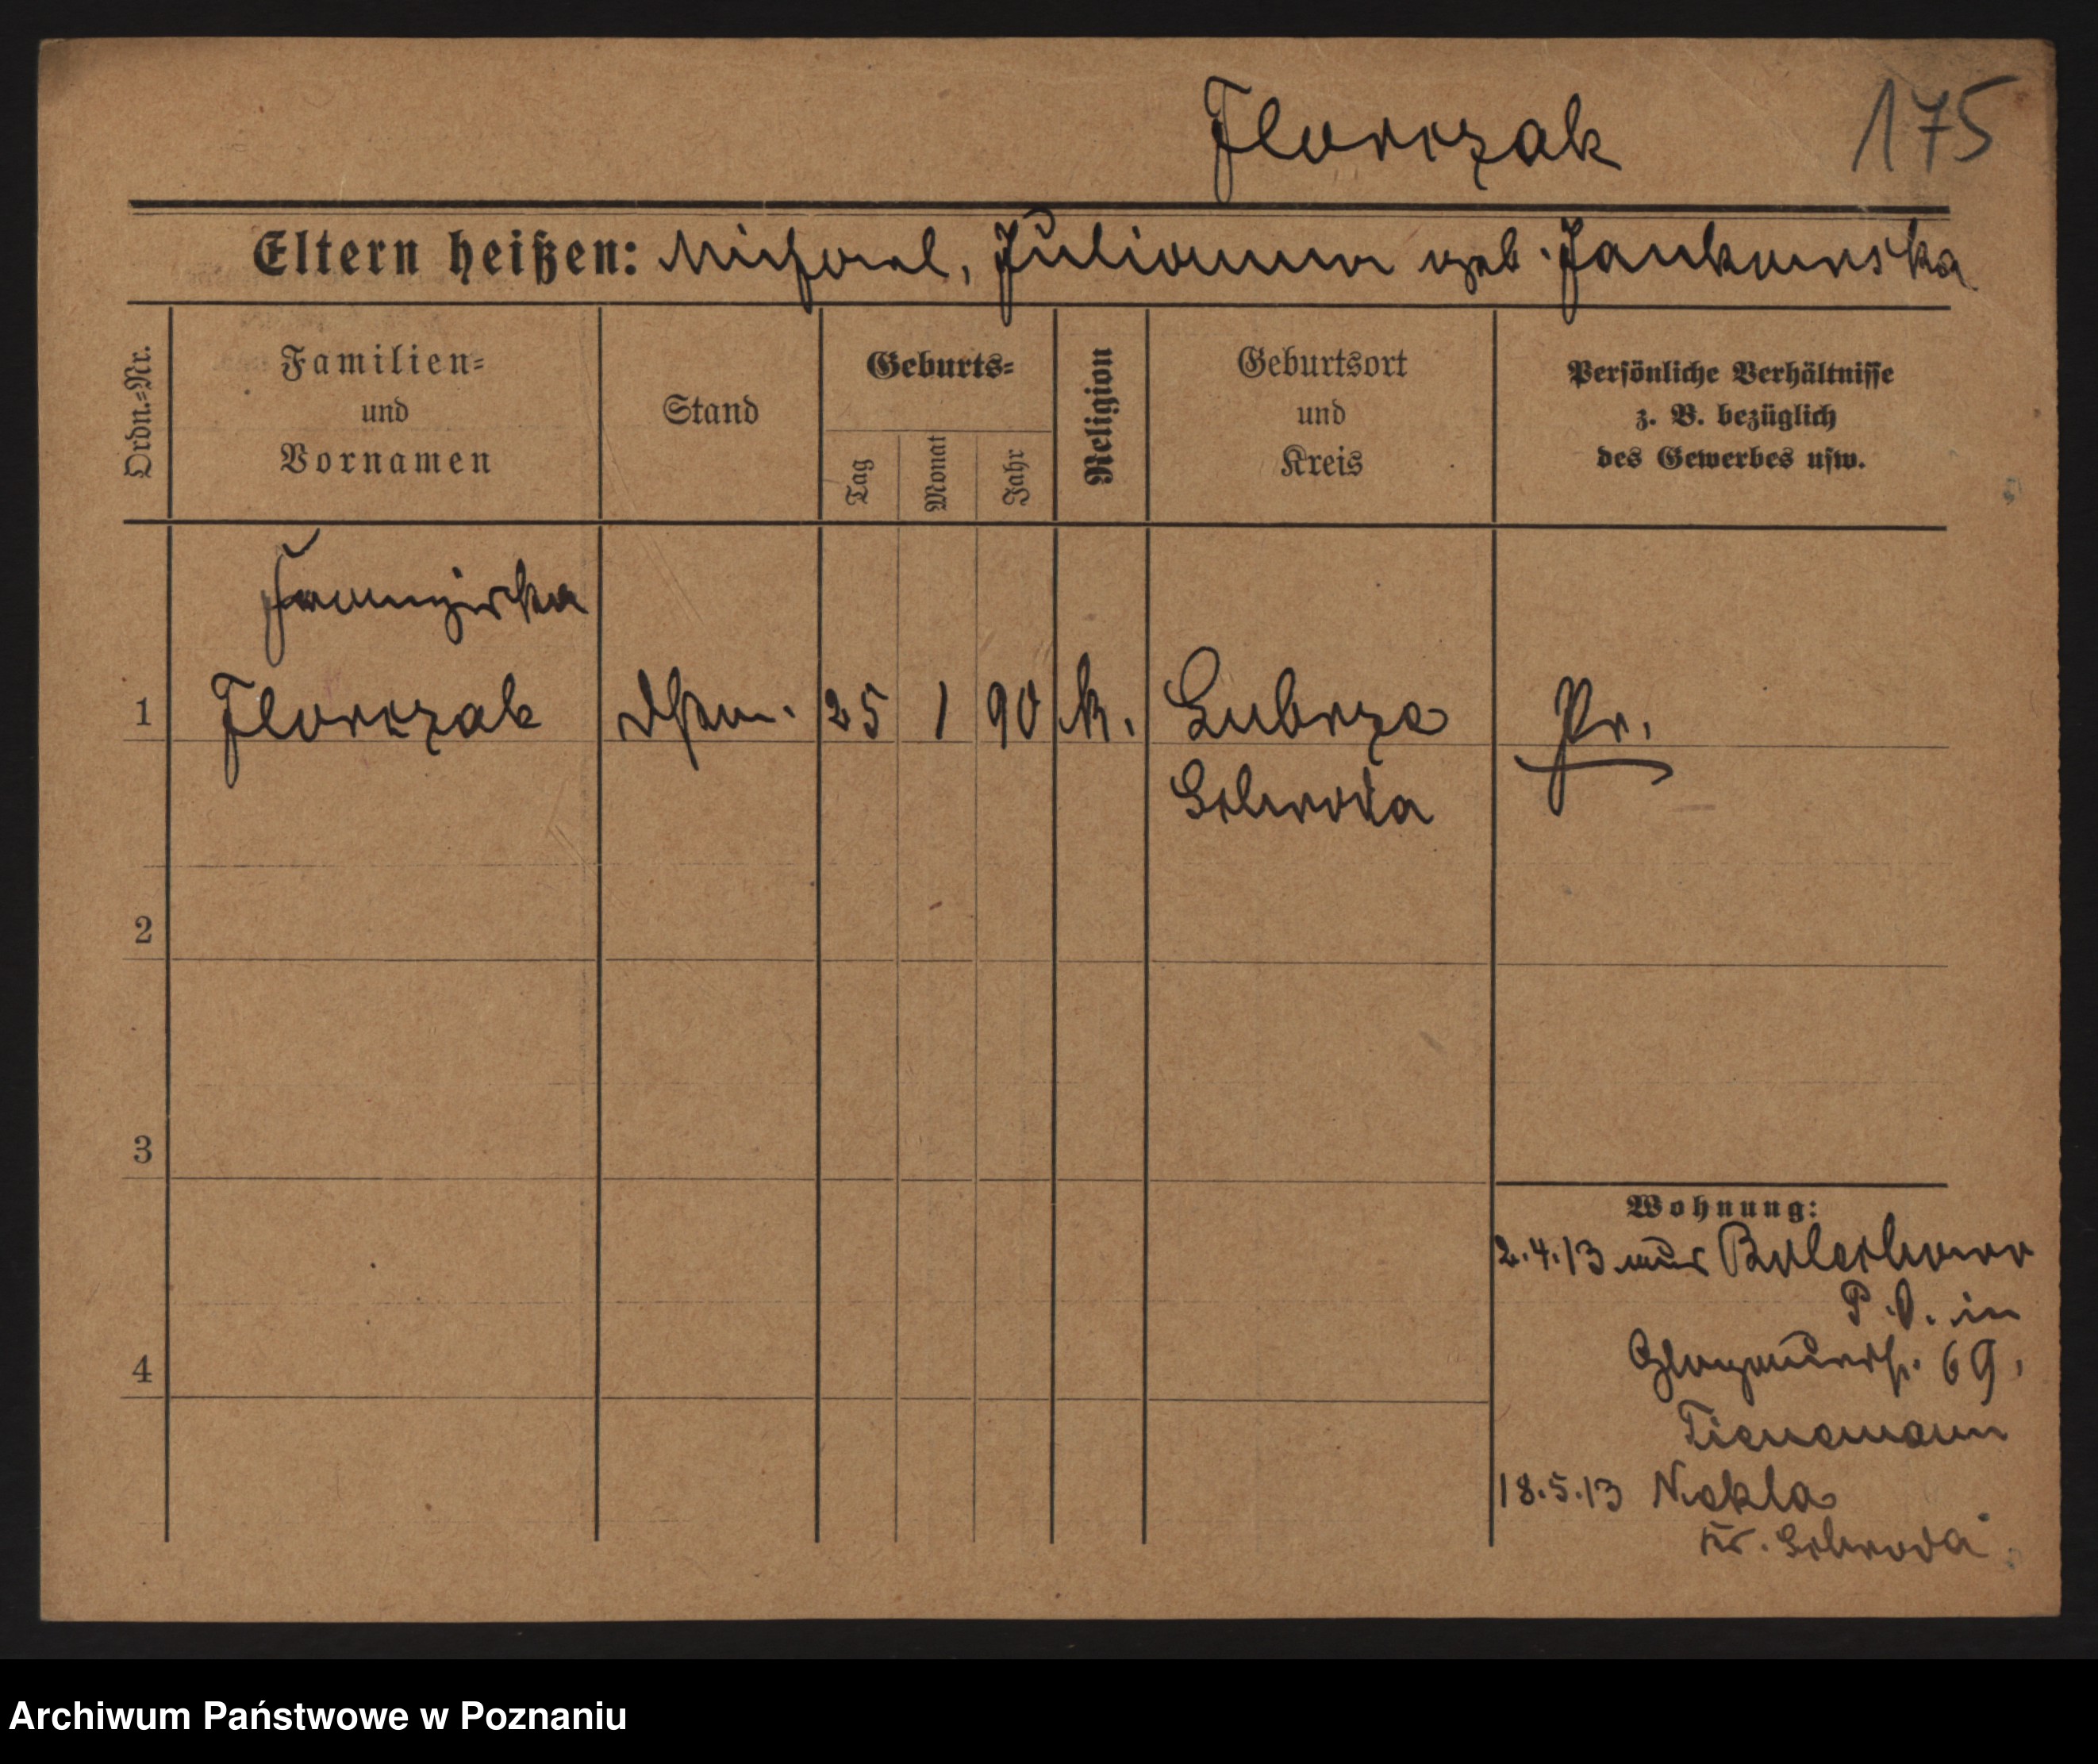 Florczak 175
Eltern heißen: Michael, Julianna geb. Jankowska
Ordn.-Nr.
Familien-
und
Vornamen
Stand
Geburts-
Tag
Monat
Jahr
Religion
Geburtsort
und
Kreis
Persönliche Verhältnisse
z. B. bezüglich
des Gewerbes usw.
Franziska
1 Florczak 25 1 90 k. Pr.
Schroda
2
3
4
Wohnung:
2.4.13 aus
P. O. in
Glogauerstr. 69.
Tienemann
18.5.13 Nekla
Kr. Schroda
Archiwum Państwowe w Poznaniu